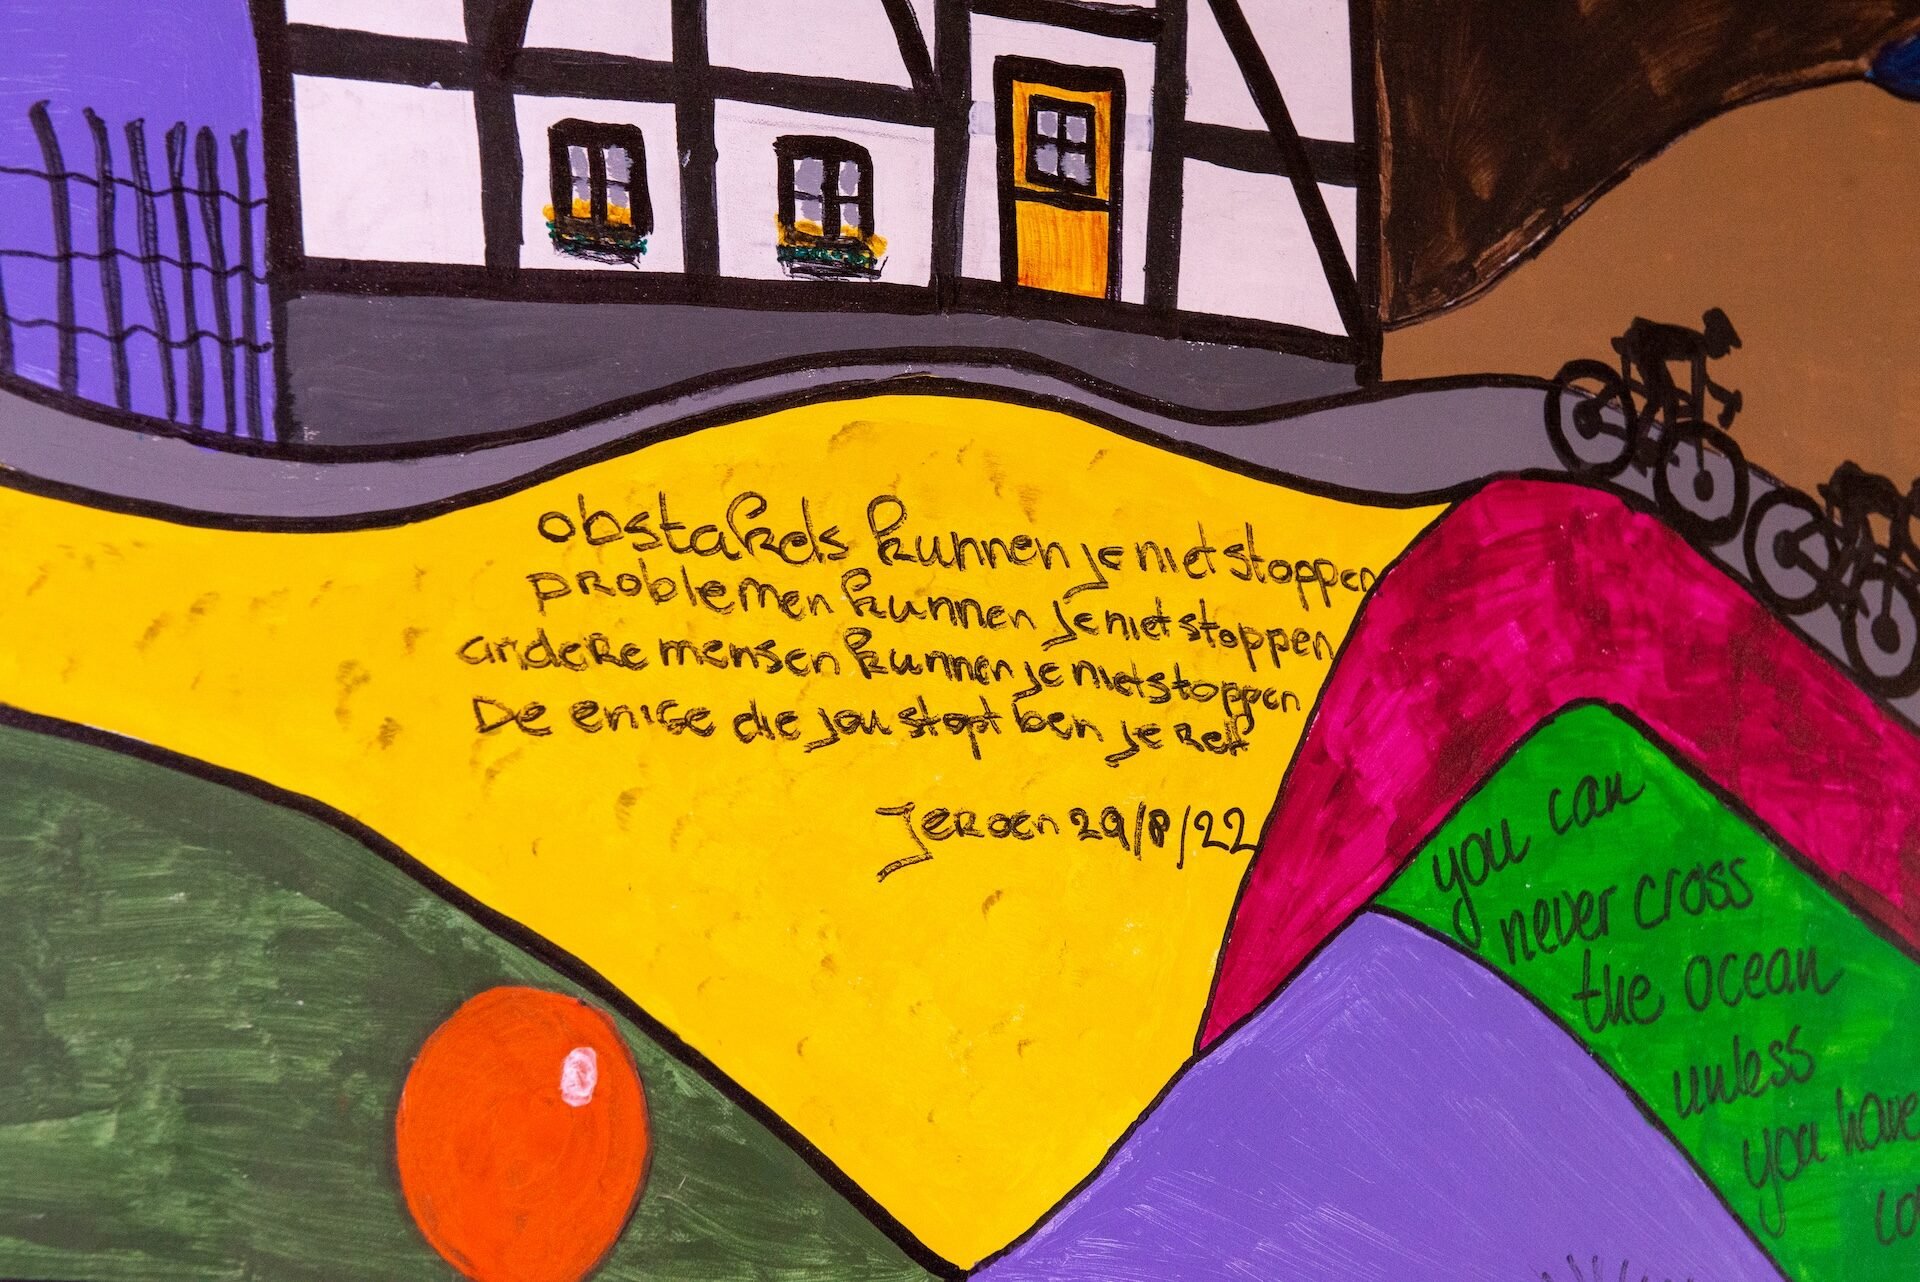 obstakels kunnen je niet stoppen
problemen kunnen je niet stoppen
andere mensen kunnen je niet stoppen
De enige die jou stopt ben je zelf
Jeroen 29/8/22
you can
never cross
the ocean
unless
you have
co